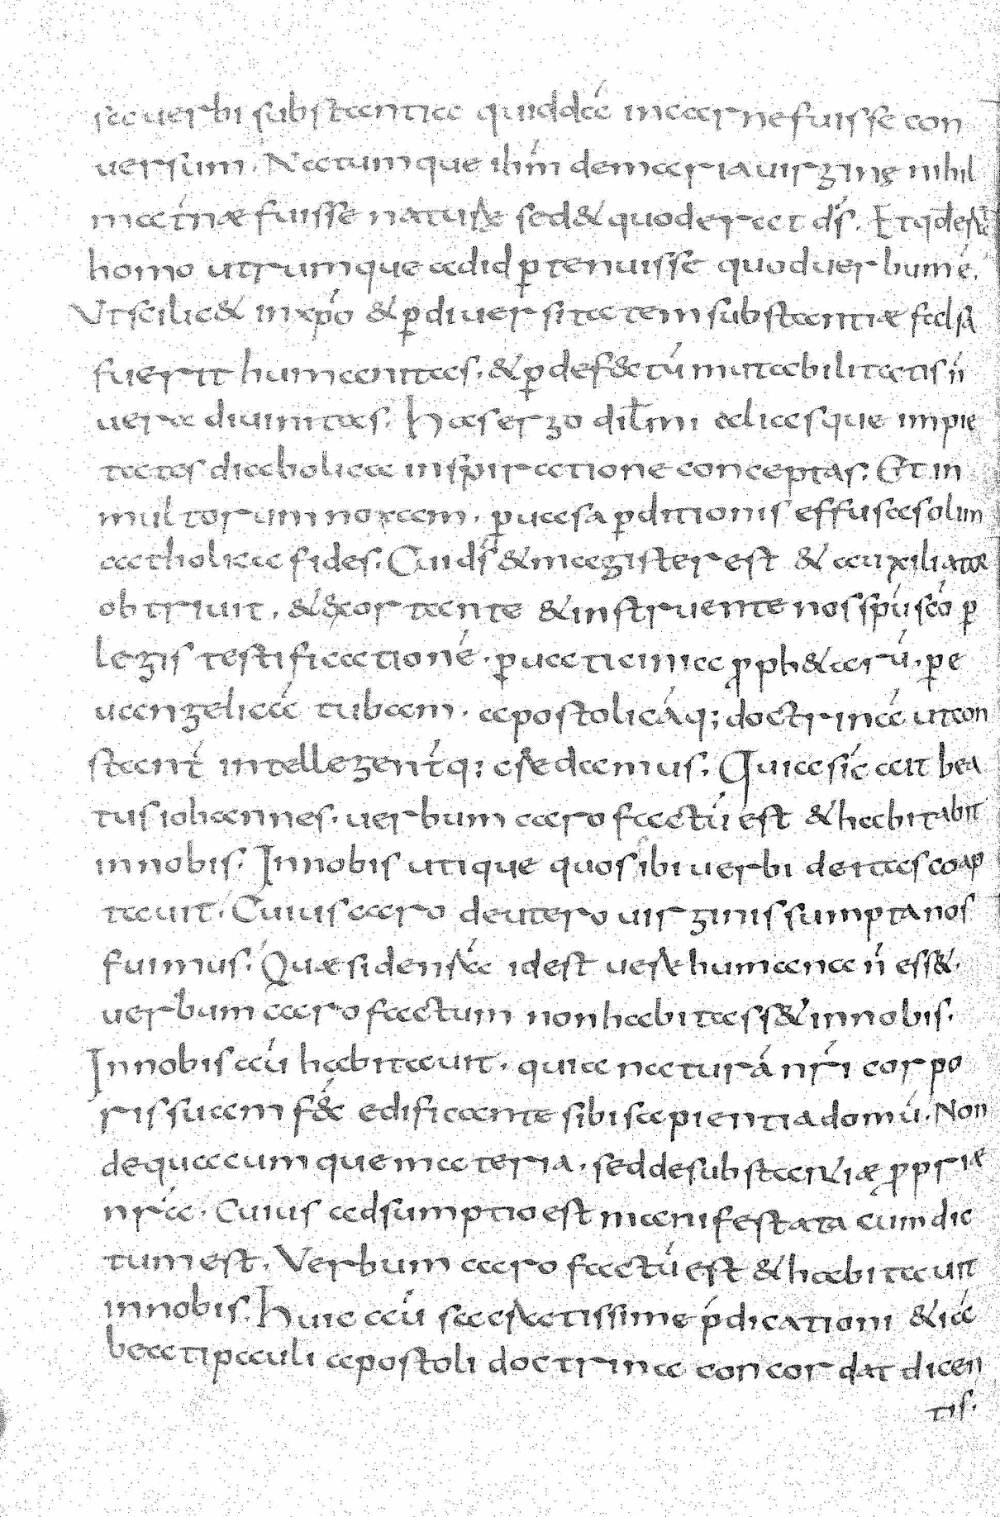 sec uerbi substantiae quiddā incarne fuisse con
uersum. Natumque ihm̄ demaria uirgine nihil
maťnae fuisse naturae sed & quod erat d̄s. Et qđ est
homo utrumque ad id p̱tenuisse quod uerbum ē.
Ut scilic& in xp̄o & p̱ diuersitatem substantiae falsa
fuerit humanitas. & p̱ def&tū mutabilitatis n̄
uera diuinitas. Has ergo dil̄mi aliasque impie
tates diabolica inspiratione conceptas. Et in
multorum noxam. p̱ uasa p̱ditionis effusas olim
catholica fides. Cui d̄s & magister est & auxiliator
obtriuit. & &ortante & instruente nos sp̄u sc̄o p̱
legis testificationē. p̱ uaticinia p̱ph&arū. p̱ e
uangelicā tubam. apostolicāq; doctrinā ut con
stant̄ intellegent̄q; credamus. Quia sić ait bea
tus iohannes. uerbum caro factū est & habitabit
in nobis. In nobis utique quos sibi uerbi deitas coap
tauit. Cuius caro de utero uirginis sumpta nos
fumus. Quae si de nr̄a id est uere humana n̄ ess&.
uerbum caro factum non habitass& in nobis.
In nobis aū habitauit. quia naturā nr̄i corpo
ris suam fec̄ edificante sibi sapientia domū. Non
de quacumque materia. sed de substantiae p̱priae
nr̄a. Cuius adsumptio est manifestata cum dic
tum est. Verbum caro factū est & habitauit
in nobis. Huic aū sacratissime p̄dicationi & iā
beati pauli apostoli doctrina concordat dicen
tis.